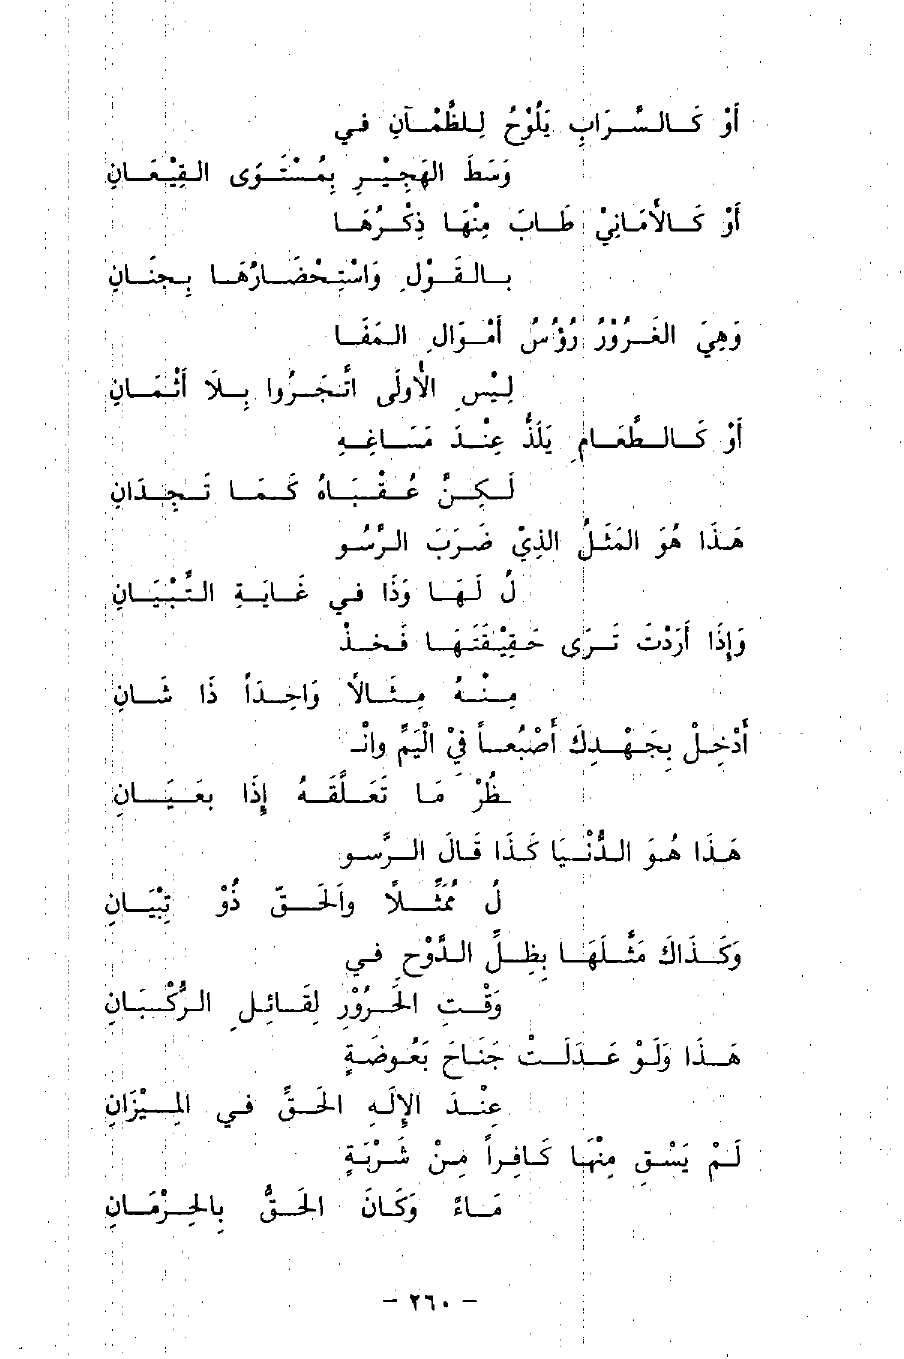 أَوْ كَالسَّرَابِ يَلُوْحُ لِلظَّمْآنِ في
وَسَطَ الهَجِيْرِ بِمُسْتَوَى القِيْعَانِ
أَوْ كَالأَمَانِيْ طَابَ مِنْهَا ذِكْرُهَا
بِالقَوْلِ وَاسْتِحْضَارُهَا بِجنَانِ
وَهِيَ الغَرُوْرُ رُؤُسُ أَمْوَالِ المَفَا
لِيْسِ الأُولَى اتَّجَرُوا بِلَا أَثْمَانِ
أَوْ كَالطَّعَامِ يَلَذُّ عِنْدَ مَسَاغِهِ
لَكِنَّ عُقْبَاهُ كَمَا تَجِدَانِ
هَذَا هُوَ المَثَلُ الذِيْ ضَرَبَ الرَّسُو
لُ لَهَا وَذَا في غَايَةِ التِّبْيَانِ
وَإِذَا أَرَدْتَ تَرَى حَقِيْقَتَهَا فَخذْ
مِنْهُ مِثَالاً وَاحِدَاً ذَا شَانِ
أَدْخِلْ بِجَهْدِكَ أَصْبُعاً فيْ الْيَمِّ وانْـ
ـظُرْ مَا تَعَلَّقَهُ إِذَا بِعَيَانِ
هَذَا هُوَ الدُّنْيَا كَذَا قَالَ الرَّسو
لُ مُمَثِّلاً والَحَقّ ذُوْ تِبْيَانِ
وَكَذَاكَ مَثَّلَهَا بِظِلِّ الدَّوْحِ في
وَقْتِ الحَرُوْرِ لِقَائِلِ الرُّكْبَانِ
هَذَا وَلَوْ عَدَلَتْ جَنَاحَ بَعُوضَةٍ
عِنْدَ الإِلَهِ الحَقِّ في المِيْزَانِ
لَمْ يَسْقِ مِنْهَا كَافِراً مِنْ شَرْبَةٍ
مَاءً وَكَانَ الحَقُّ بِالحِرْمَانِ
- ٢٦٠ -